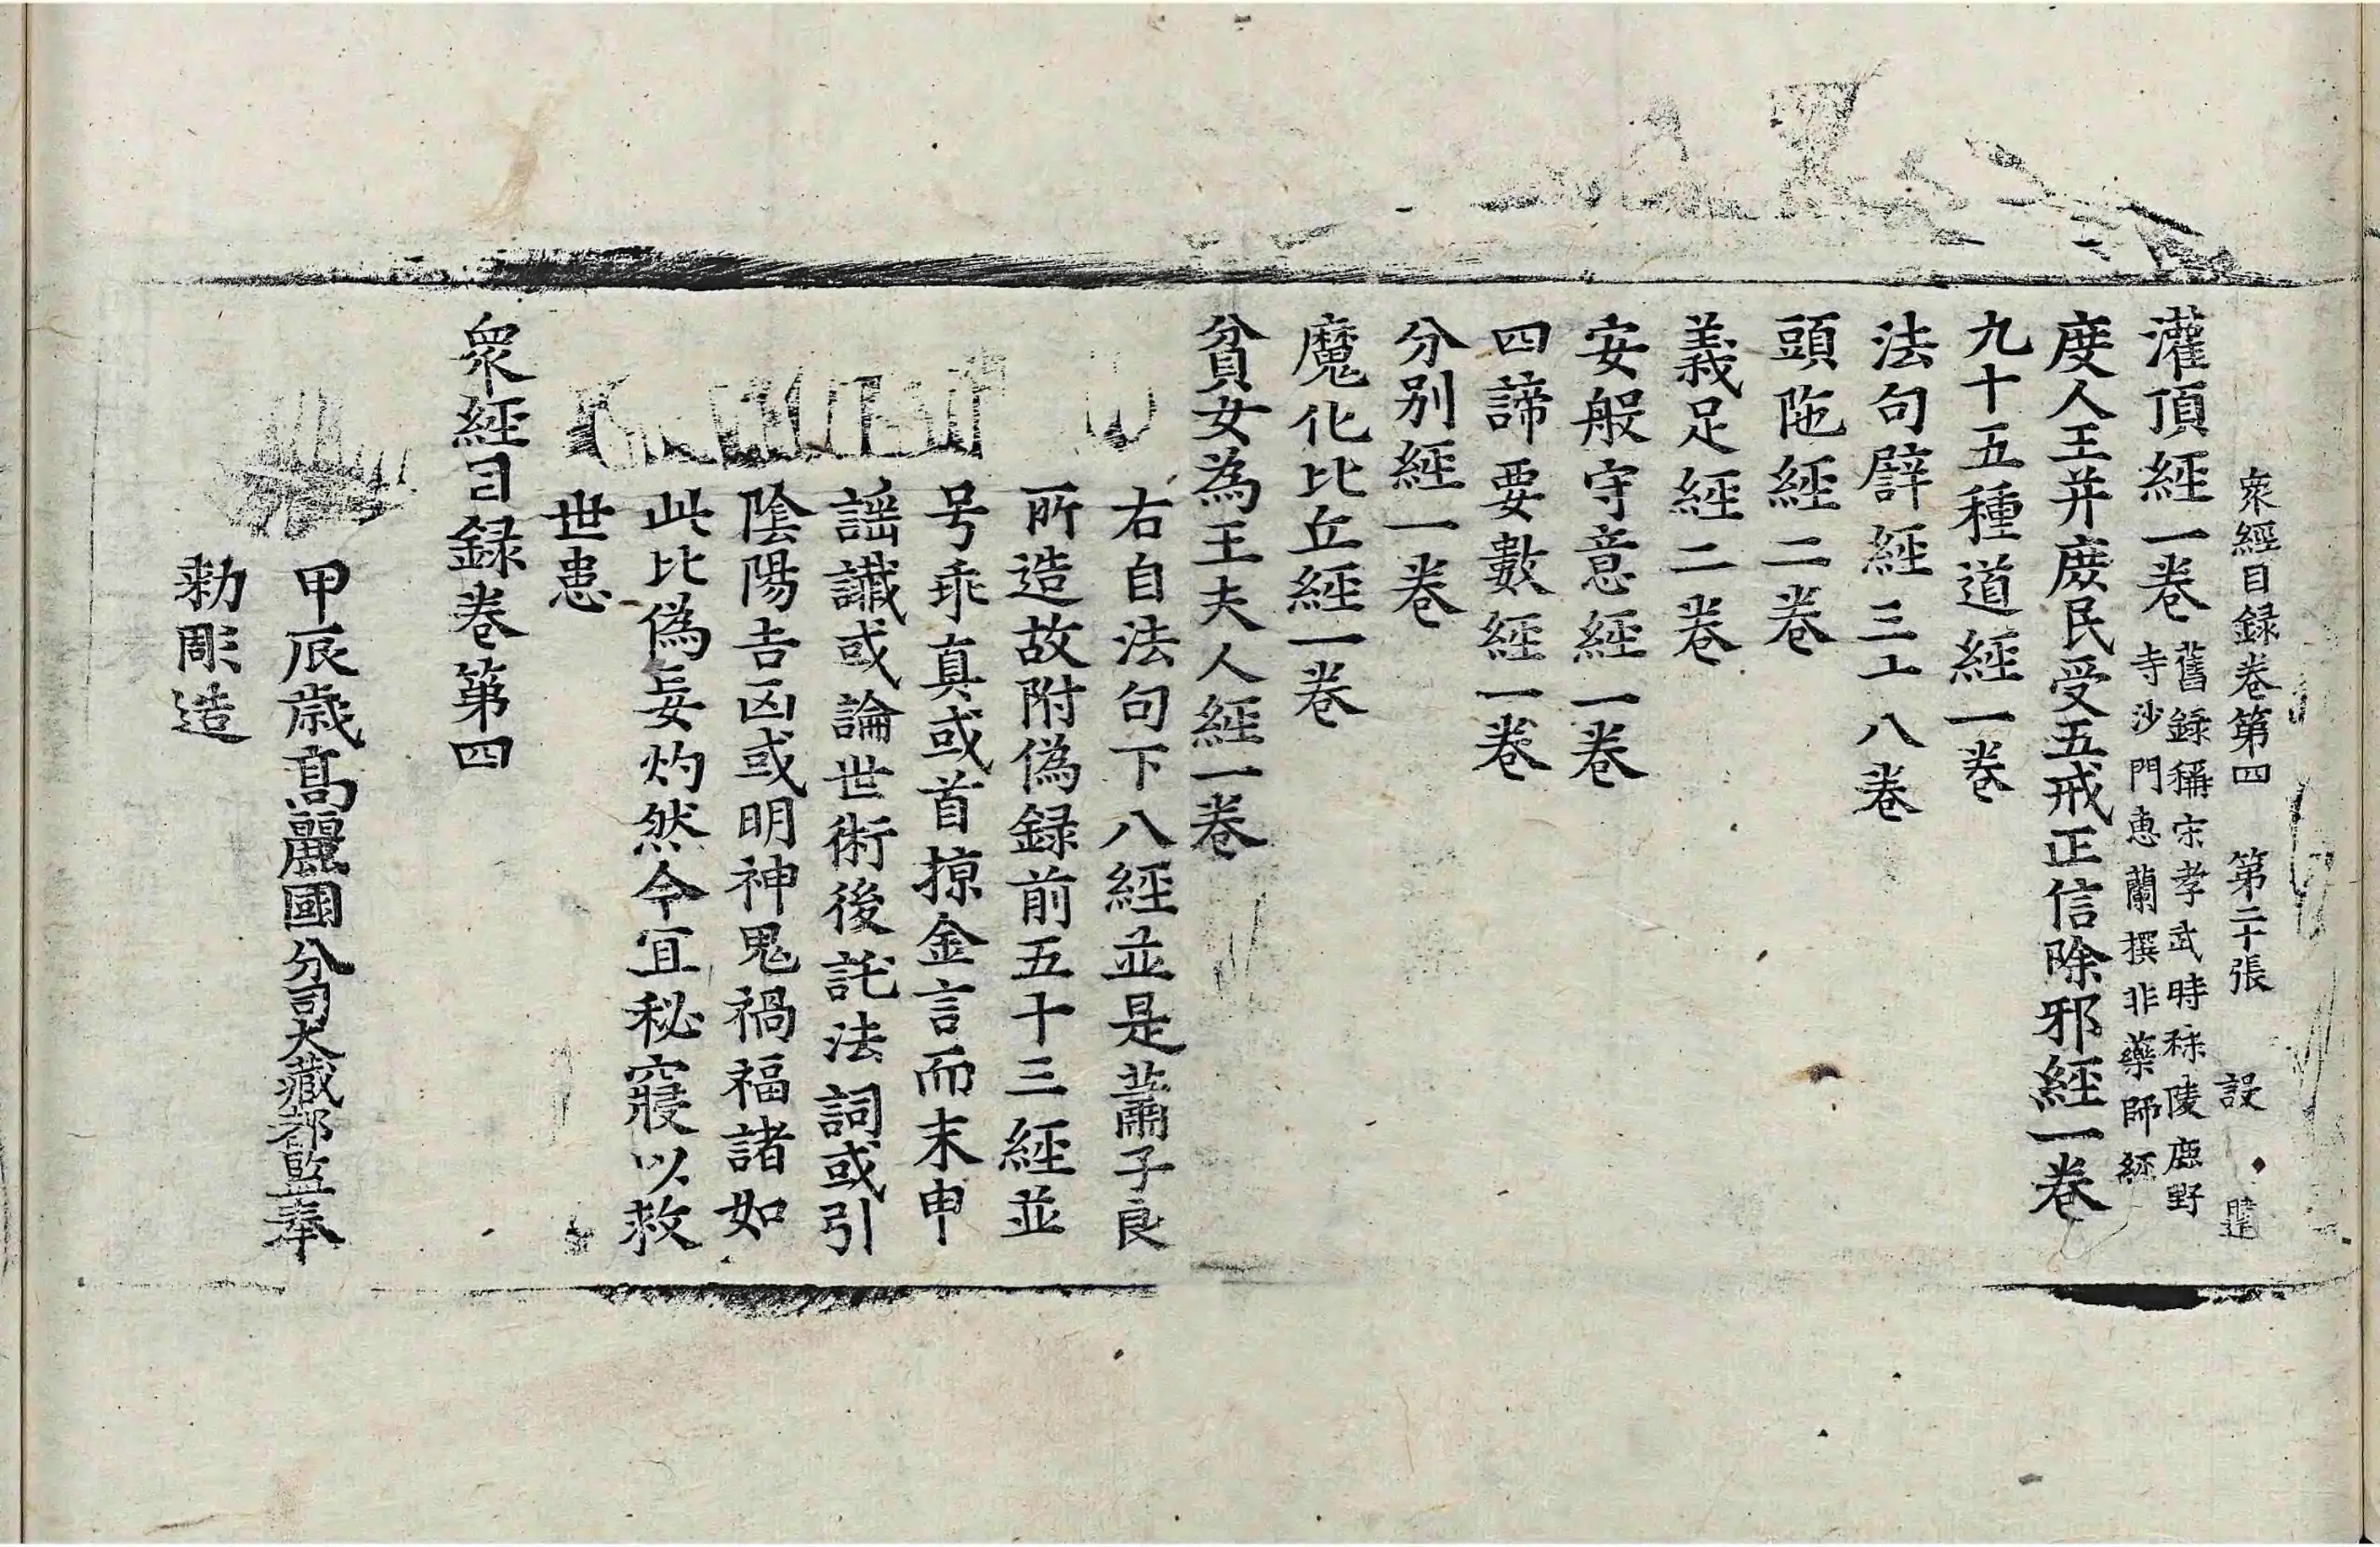 衆經目録卷第四 第二十張 設
灌頂經一卷 舊録稱宋孝武時秣陵鹿野
寺沙門惠蘭撰非藥師經
度人王幷庶民受五戒正信除邪經一卷
九十五種道經一卷
法句譬經三十八卷
頭陁經二卷
義足經二卷
安般守意經一卷
四諦要數經一卷
分別經一卷
魔化比丘經一卷
貧女為王夫人經一卷
右自法句下八經並是蕭子良
所造故附偽録前五十三經並
号乖真或首掠金言而末申
謡讖或論世術後託法詞或引
陰陽吉凶或明神鬼禍福諸如
此比偽妄灼然今宜秘寢以救
世患
衆經目録卷第四
甲辰歳髙麗國分司大藏都監奉
勑彫造